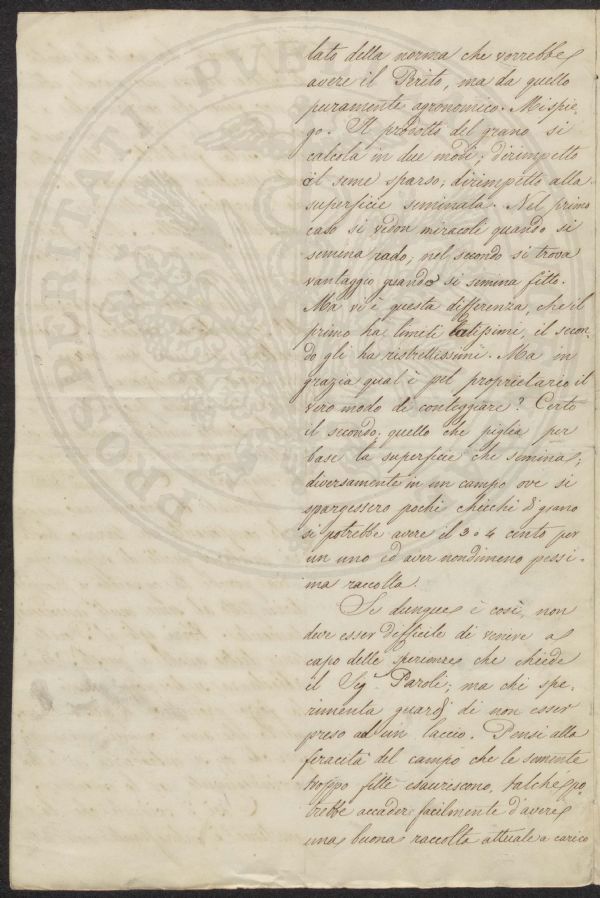 PROSPERITATI PVB
lato della norma che vorrebbe
avere il Perito, ma da quello
puramente agronomico. Mi spie-
go. Il prodotto del grano si
calcola in due modi; dirimpetto
al seme sparso; dirimpetto alla
superficie seminata. Nel primo
caso si vedon miracoli quando si
semina rado, nel secondo si trova
vantaggio quando si semina fitto.
Ma vi è questa differenza, che il
primo ha limiti latissimi, il secon-
do gli ha ristrettissimi. Ma in
grazia qual è pel proprietario il
vero modo di conteggiare? Certo
il secondo; quello che piglia per
base la superficie che semina;
diversamente in un campo ove si
spargessero pochi chicchi di grano
si potrebbe avere il 3 o 4 cento per
un uno ed aver nondimeno pessi-
ma raccolta.
Se dunque è così, non
deve esser difficile di venire a
capo delle sperienze che chiede
il Sig.r Paroli; ma chi spe-
rimenta guardi di non esser
preso ad un laccio. Pensi alla
feracità del campo che le semente
troppo fitte esauriscono, talché po-
trebbe accader facilmente d'avere
una buona raccolta attuale a carico